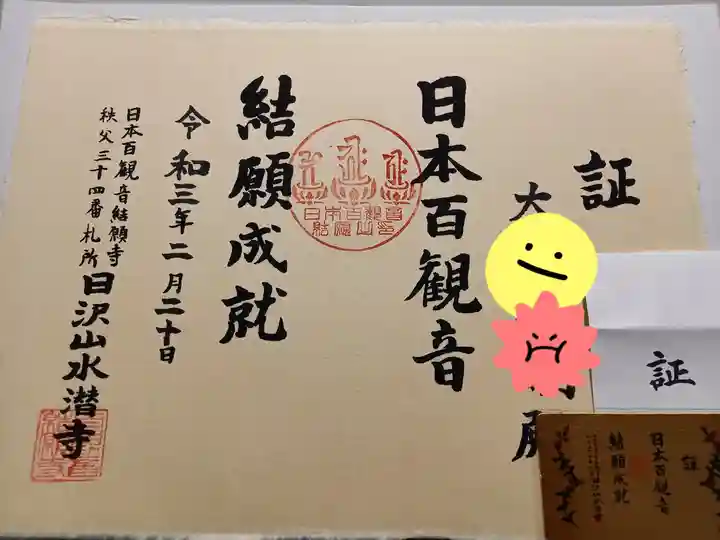 証
大
殿
日本百観音
結願成就
令和三年二月二十日
日本百観音結願寺
秩父三十四番札所
日沢山水潜寺
日本百観音
結願山
証
証
日本百観音
結願成就